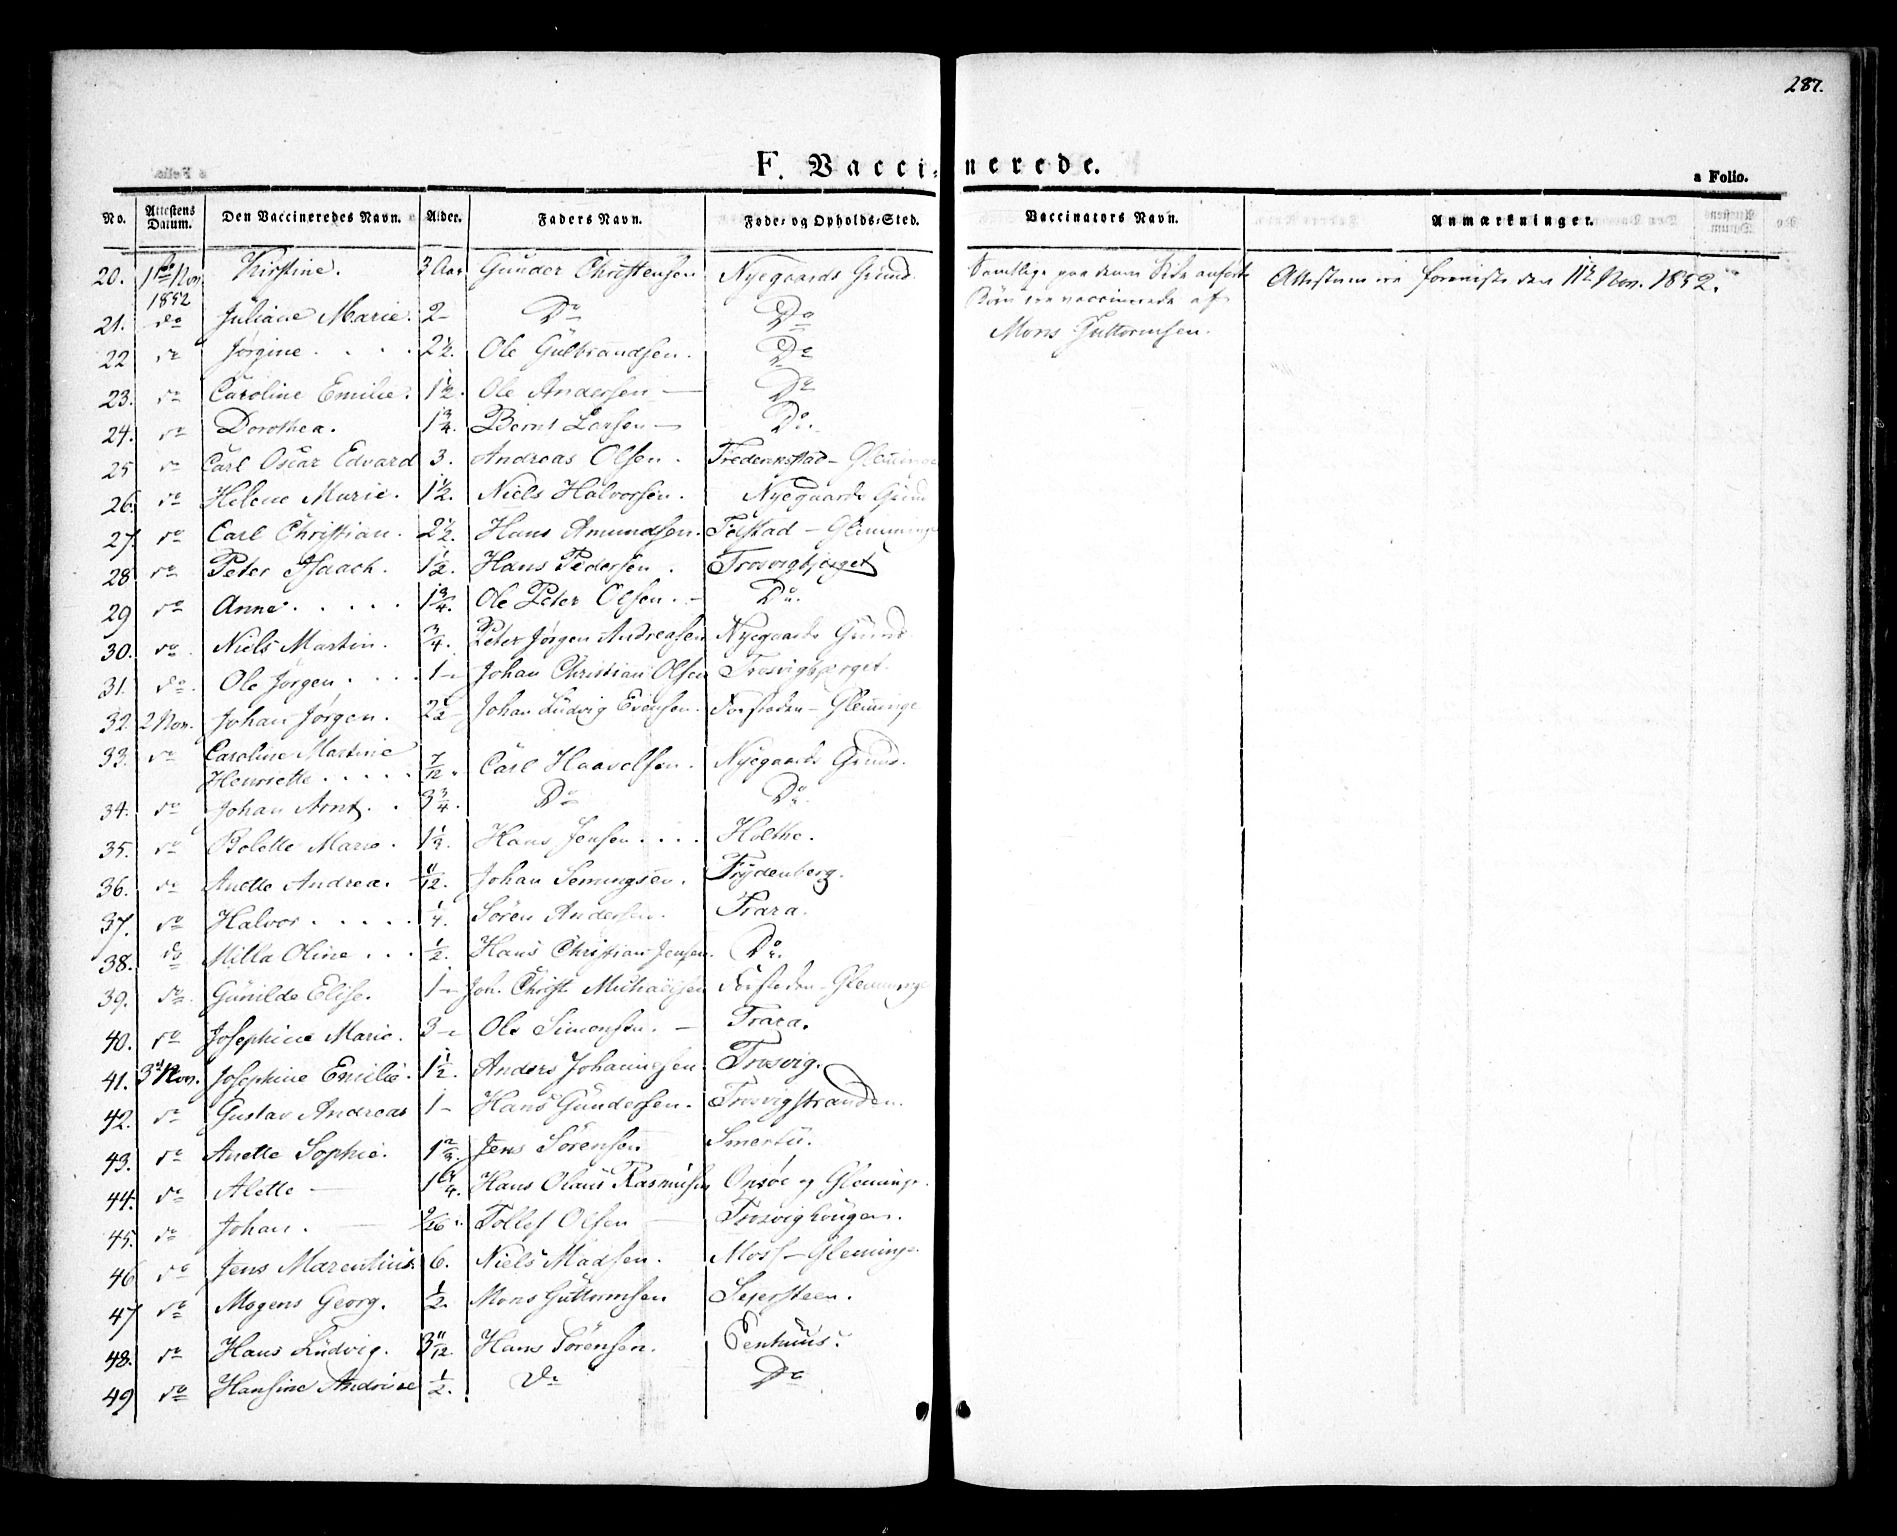 287.
F. Vaccinerede.
a Folio.
No. Attestens Datum. Den Vaccineredes Navn. Alder. Faders Navn. Føde- og Opholds-Sted. Vaccinators Navn. Anmærkninger.
20. 1ste Nov 1852 Kirstine. 3 Aar Gunder Christensen Nyegaards Grund. Samtlige paa denne Side anførte Attesterne ere foreviste den 11te Nov. 1852.
Børn ere vaccinerede af
Mons Guttormsen.
21. do Juliane Marie. 2 - Do Do
22 do Jørgine . . . . 2 1/2. Ole Gulbrandsen. Do
23. do Caroline Emilie. 1 1/2. Ole Andersen — Do
24. do Dorothea. 1 3/4. Bernt Larsen — Do.
25 do Carl Oscar Edvard 3. Andreas Olsen. Frederikstad - Glemminge
26. do Helene Marie. 1 1/2. Niels Halvorsen. Nyegaards Grund
27. do Carl Christian. 2 1/2. Hans Amundsen. Felstad - Glemminge
28 do Peter Isaach. 1 1/2. Hans Pedersen. Trosvigbjerget
29 do Anne . . . . . 1 3/4. Ole Peter Olsen. - Do.
30. do. Niels Martin. 3/4. Peter Jørgen Andreasen Nyegaards Grund
31. do. Ole Jørgen . . . . 1 - Johan Christian Olsen Trosvigbjerget.
32. 2 Nov. Johan Jørgen. 2 1/2 - Johan Ludvig Evensen. Forstaden - Glemminge
33. do Caroline Martine
Henriette . . . . . 7/12. Carl Haavelsen. Nyegaards Grund.
34. do Johan Arnt. . 3 3/4. Do Do.
35. do Bolette Marie. 1 1/3. Hans Jensen . . . . Holthe.
36. do Anette Andrea. 11/12. Johan Semingsen. Frydenberg.
37. do Halvor . . . . . 1/4. Søren Andersen. Trara.
38. do Milla Oline . . . 1/2. Hans Christian Jensen. Do.
39. do. Gunilde Elise. 1 - Joh. Christ. Michaelsen Forstaden - Glemminge
40. do Josephine Marie. 3 - Ole Simonsen. - Trara.
41. 3die Nov. Josephine Emilie. 1 1/2. Anders Johannesen. Trosvig.
42. do Gustav Andreas 1 - Hans Gundersen. Trosvigstranden.
43. do Anette Sophie. 1 2/3. Jens Sørensen Smertu.
44. do Alette — 1 3/4. Hans Olaus Rasmusen Onsøe og Glemminge.
45. do Johan. — Tollef Olsen — Trosvighougen.
46 do Jens Marentius. 6. Niels Madsen. Moss - Glemminge
47 do Mogens Georg. 1/2. Mons Guttormsen Sejersteen.
48. do Hans Ludvig. 3 11/12. Hans Sørensen.
49 do Hansine Andrine 1/2. do Do